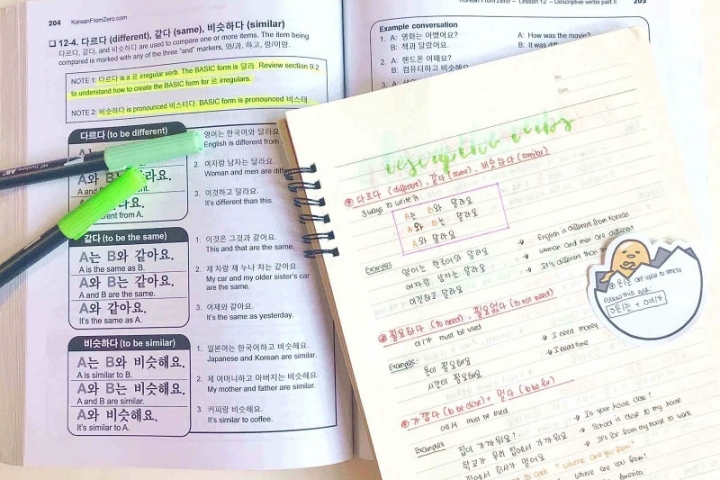 204 KoreanFromZero.com
12-4. 다르다 (different), 같다 (same), 비슷하다 (similar)
다르다, 같다, and 비슷하다 are used to compare one or more items. The item being
compared is marked with any of the three "and" markers, 와/과, 하고, 랑/이랑.
NOTE 1: 다르다 is a 르 irregular verb. The BASIC form is 달라. Review section 9-2
to understand how to create the BASIC form for 르 irregulars.
NOTE 2: 비슷하다 is pronounced 비스타다. BASIC form is pronounced 비스태.
다르다 (to be different)
A와 B는
A and
erent from A.
1. 영어는 한국어와 달라요.
English is different from
2. 여자랑 남자는 달라요.
Women and men are differ
3. 이것하고 달라요.
It's different than this.
같다 (to be the same)
A는 B와 같아요.
A is the same as B.
A와 B는 같아요.
A and B are the same.
A와 같아요.
It's the same as A.
1. 이것은 그것과 같아요.
This and that are the same.
2. 제 차랑 제 누나 차는 같아요.
My car and my older sister's car
are the same.
3. 어제와 같아요.
It's the same as yesterday.
비슷하다 (to be similar)
A는 B와 비슷해요.
A is similar to B.
A와 B는 비슷해요.
A and B are similar.
A와 비슷해요.
It's similar to A.
1. 일본어는 한국어하고 비슷해요.
Japanese and Korean are similar.
2. 제 어머니하고 아버지는 비슷해요.
My mother and father are similar.
3. 커피랑 비슷해요.
It's similar to coffee.
KoreanFromZero.com – Lesson 12 – Descriptive verbs part II 205
Example conversation
1. A: 영화는 어땠어요? A: How was the movie?
B: 책과 달랐어요. B: It was
2. A: 핸드폰 어때요?
B: 컴퓨터하고 비슷해요
3. A:
No
descriptive verbs
다르다 (different), 같다 (same), 비슷하다 (similar)
3 ways to write it
A는 B와 달라요
A와 B는 달라요
A와 달라요
Examples
영어는 한국어와 달라요 → English is different from Korean
여자랑 남자는 달라요 → woman and men are different
이것하고 달라요 → It's different than
필요하다 (to need), 필요없다 (to not need)
이/가 must be used
Examples:
돈이 필요해요 → I need money
시간이 필요해요 → I need time
은/는 are used to stress
follow this rule:
은/는 + 이/가
가깝다 (to be close) + 멀다 (to be far)
must be used
Examples
집이 가까워요? → Is your house close?
학교가 우리 집에서 가까워요 → School is close to my house
집에서 회사가 멀어요 → It's far from my house to work
"where are you from"
where are you from?